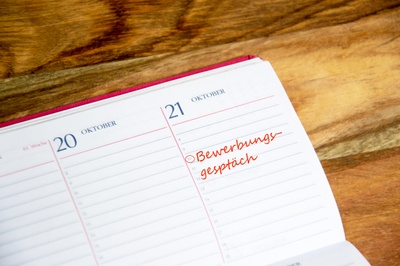 20 OKTOBER
21 OKTOBER
Bewerbungs-
gespräch